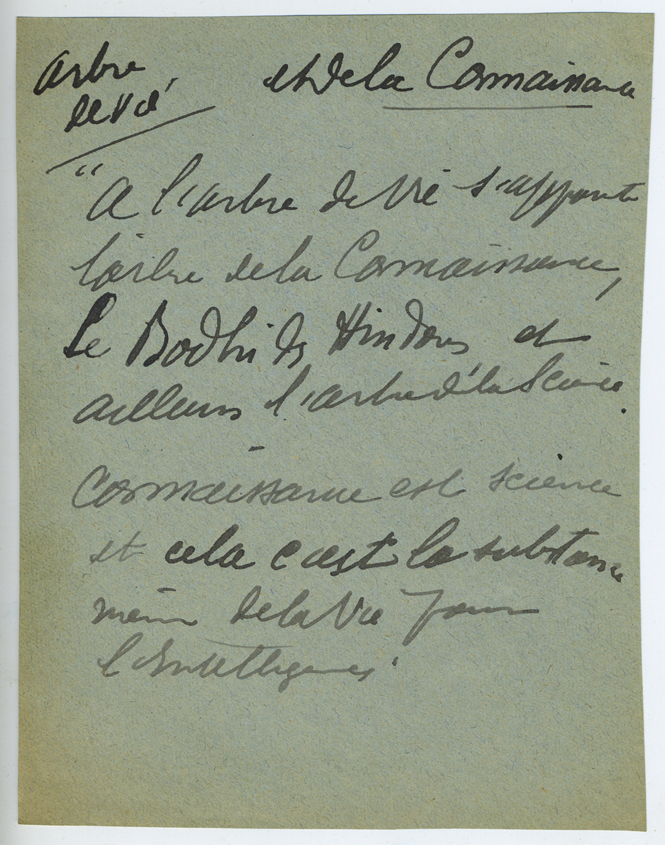 arbre et de la Connaissance
de Vie
"A l'arbre de Vie s'apparente
l'arbre de la Connaissance,
Le Bodhi des Hindous et
ailleurs l'arbre de la Science.
Connaissance est science
et cela c'est la substance
même de la Vie pour
l'Intelligence.